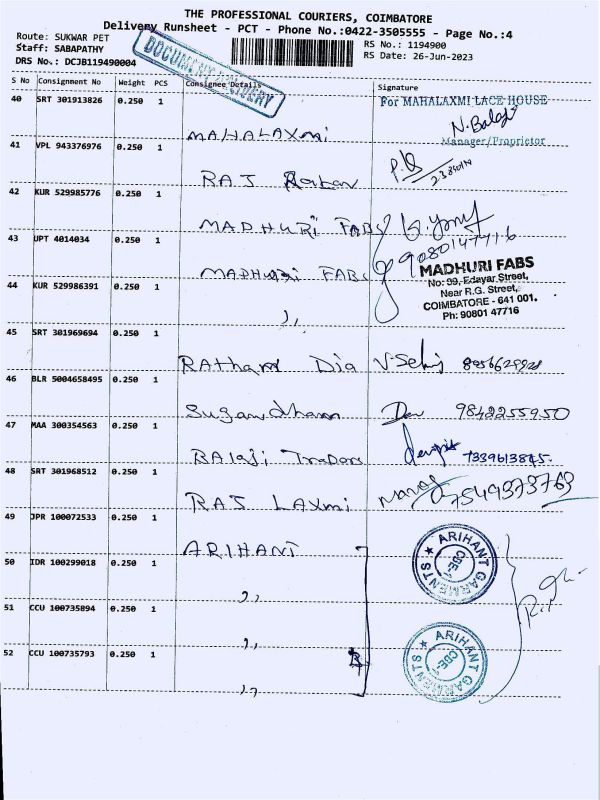 THE PROFESSIONAL COURIERS, COIMBATORE
Delivery Runsheet - PCT - Phone No.:0422-3505555 - Page No.:4
Route: SUKWAR PET RS No.: 1194900
Staff: SABAPATHY RS Date: 26-Jun-2023
DRS No.: DCJB119490004
DOCUMENT DELIVERY
S No Consignment No Weight PCS Consignee Details Signature
40 SRT 301913826 0.250 1 MAHALAXMI For MAHALAXMI LACE HOUSE
N. Balaji
Manager/Proprietor
41 VPL 943376976 0.250 1 RAJ
42 KUR 529985776 0.250 1 MADHURI FABS
9080147716
43 UPT 4014034 0.250 1 MADHURI FABS
MADHURI FABS
No: 99, Edayar Street,
Near R.G. Street,
COIMBATORE - 641 001.
Ph: 90801 47716
44 KUR 529986391 0.250 1 ,,
45 SRT 301969694 0.250 1 RAtham Dia
46 BLR 5004658495 0.250 1 Sugandham 9842255950
47 MAA 300354563 0.250 1 BAlaji Traders 7339613845.
48 SRT 301968512 0.250 1 RAJ LAXMI 7549373763
49 JPR 100072533 0.250 1 ARIHANT
ARIHANT GARMENTS
CBE-1
50 IDR 100299018 0.250 1 ,,
51 CCU 100735894 0.250 1 ,,
52 CCU 100735793 0.250 1 ,,
ARIHANT GARMENTS
CBE-1